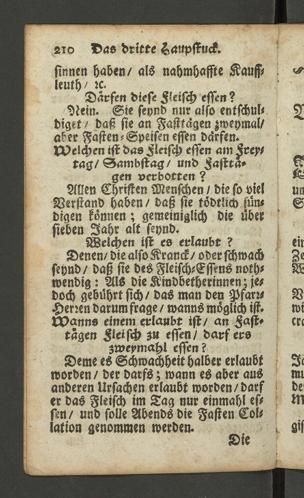 210 Das dritte Haupstuck.
sinnen haben/ als nahmhaffte Kauff-
leuth/ ꝛc.
Därfen diese Fleisch essen?
Nein. Sie seynd nur also entschul-
diget/ daß sie an Fasttägen zweymal/
aber Fasten-Speisen essen därfen.
Welchen ist das Fleisch essen am Frey-
tag/ Sambstag/ und Fasttä-
gen verbotten?
Allen Christen Menschen/ die so viel
Verstand haben/ daß sie tödtlich sün-
digen können; gemeiniglich die über
sieben Jahr alt seynd.
Welchen ist es erlaubt?
Denen/ die also Kranck/ oder schwach
seynd/ daß sie des Fleisch-Essens noth-
wendig: Als die Kindbetherinnen; je-
doch gebührt sich/ das man den Pfarr-
Herren darum frage/ wanns möglich ist.
Wanns einem erlaubt ist/ an Fast-
tägen Fleisch zu essen/ darf ers
zweymahl essen?
Deme es Schwachheit halber erlaubt
worden/ der darfs; wann es aber aus
anderen Ursachen erlaubt worden/ darf
er das Fleisch im Tag nur einmahl es-
sen/ und solle Abends die Fasten Col-
lation genommen werden.
Die